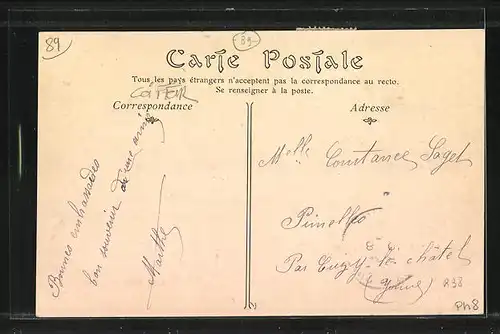 89
89
Carte Postale
Tous les pays étrangers n'acceptent pas la correspondance au recto.
Se renseigner à la poste.
COTEUR
Correspondance
Adresse
Bonnes embrassades
bon souvenir de une amie
Marthe
Melle Constance Saget
Pimelles
Par Cruzy-le-châtel
(Yonne)
R98
PH8